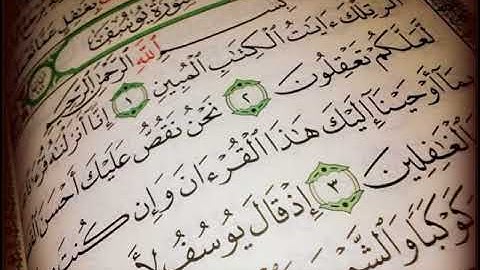 بغفل عما
سورة يوسف
بسم الله الرحمن الرحيم
الٓر تِلْكَ ءَايَٰتُ ٱلْكِتَٰبِ ٱلْمُبِينِ ١ إِنَّآ أَنزَلْنَٰهُ قُرْءَٰنًا
لَّعَلَّكُمْ تَعْقِلُونَ ٢ نَحْنُ نَقُصُّ عَلَيْكَ أَحْسَنَ
بِمَآ أَوْحَيْنَآ إِلَيْكَ هَٰذَا ٱلْقُرْءَانَ وَإِن كُنتَ
ٱلْغَٰفِلِينَ ٣ إِذْ قَالَ يُوسُفُ
كَوْكَبًا وَٱلشَّمْسَ